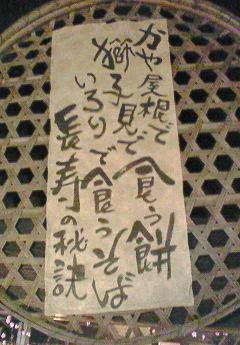 かや屋根で食う餅
獅子見で
いろりで食うそば
長寿の秘訣